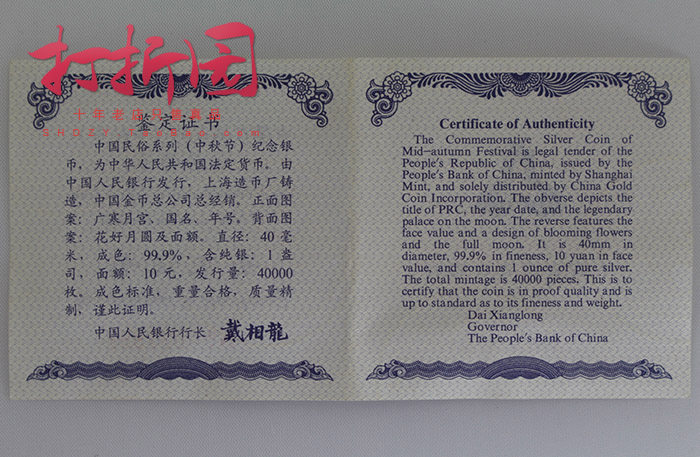 打折园
十年老店品质真品
鉴定证书
中国民俗系列（中秋节）纪念银
币，为中华人民共和国法定货币。由
中国人民银行发行，上海造币厂铸
造，中国金币总公司总经销。正面图
案：广寒月宫、国名、年号。背面图
案：花好月圆及面额。直径：40毫
米，成色：99.9%，含纯银：1盎
司，面额：10元，发行量：40000
枚。成色标准，重量合格，质量精
制，谨此证明。
中国人民银行行长 戴相龍
Certificate of Authenticity
The Commemorative Silver Coin of
Mid-autumn Festival is legal tender of the
People's Republic of China, issued by the
People's Bank of China, minted by Shanghai
Mint, and solely distributed by China Gold
Coin Incorporation. The obverse depicts the
title of PRC, the year date, and the legendary
palace on the moon. The reverse features the
face value and a design of blooming flowers
and the full moon. It is 40mm in
diameter, 99.9% in fineness, 10 yuan in face
value, and contains 1 ounce of pure silver.
The total mintage is 40000 pieces. This is to
certify that the coin is in proof quality and is
up to standard as to its fineness and weight.
Dai Xianglong
Governor
The People's Bank of China